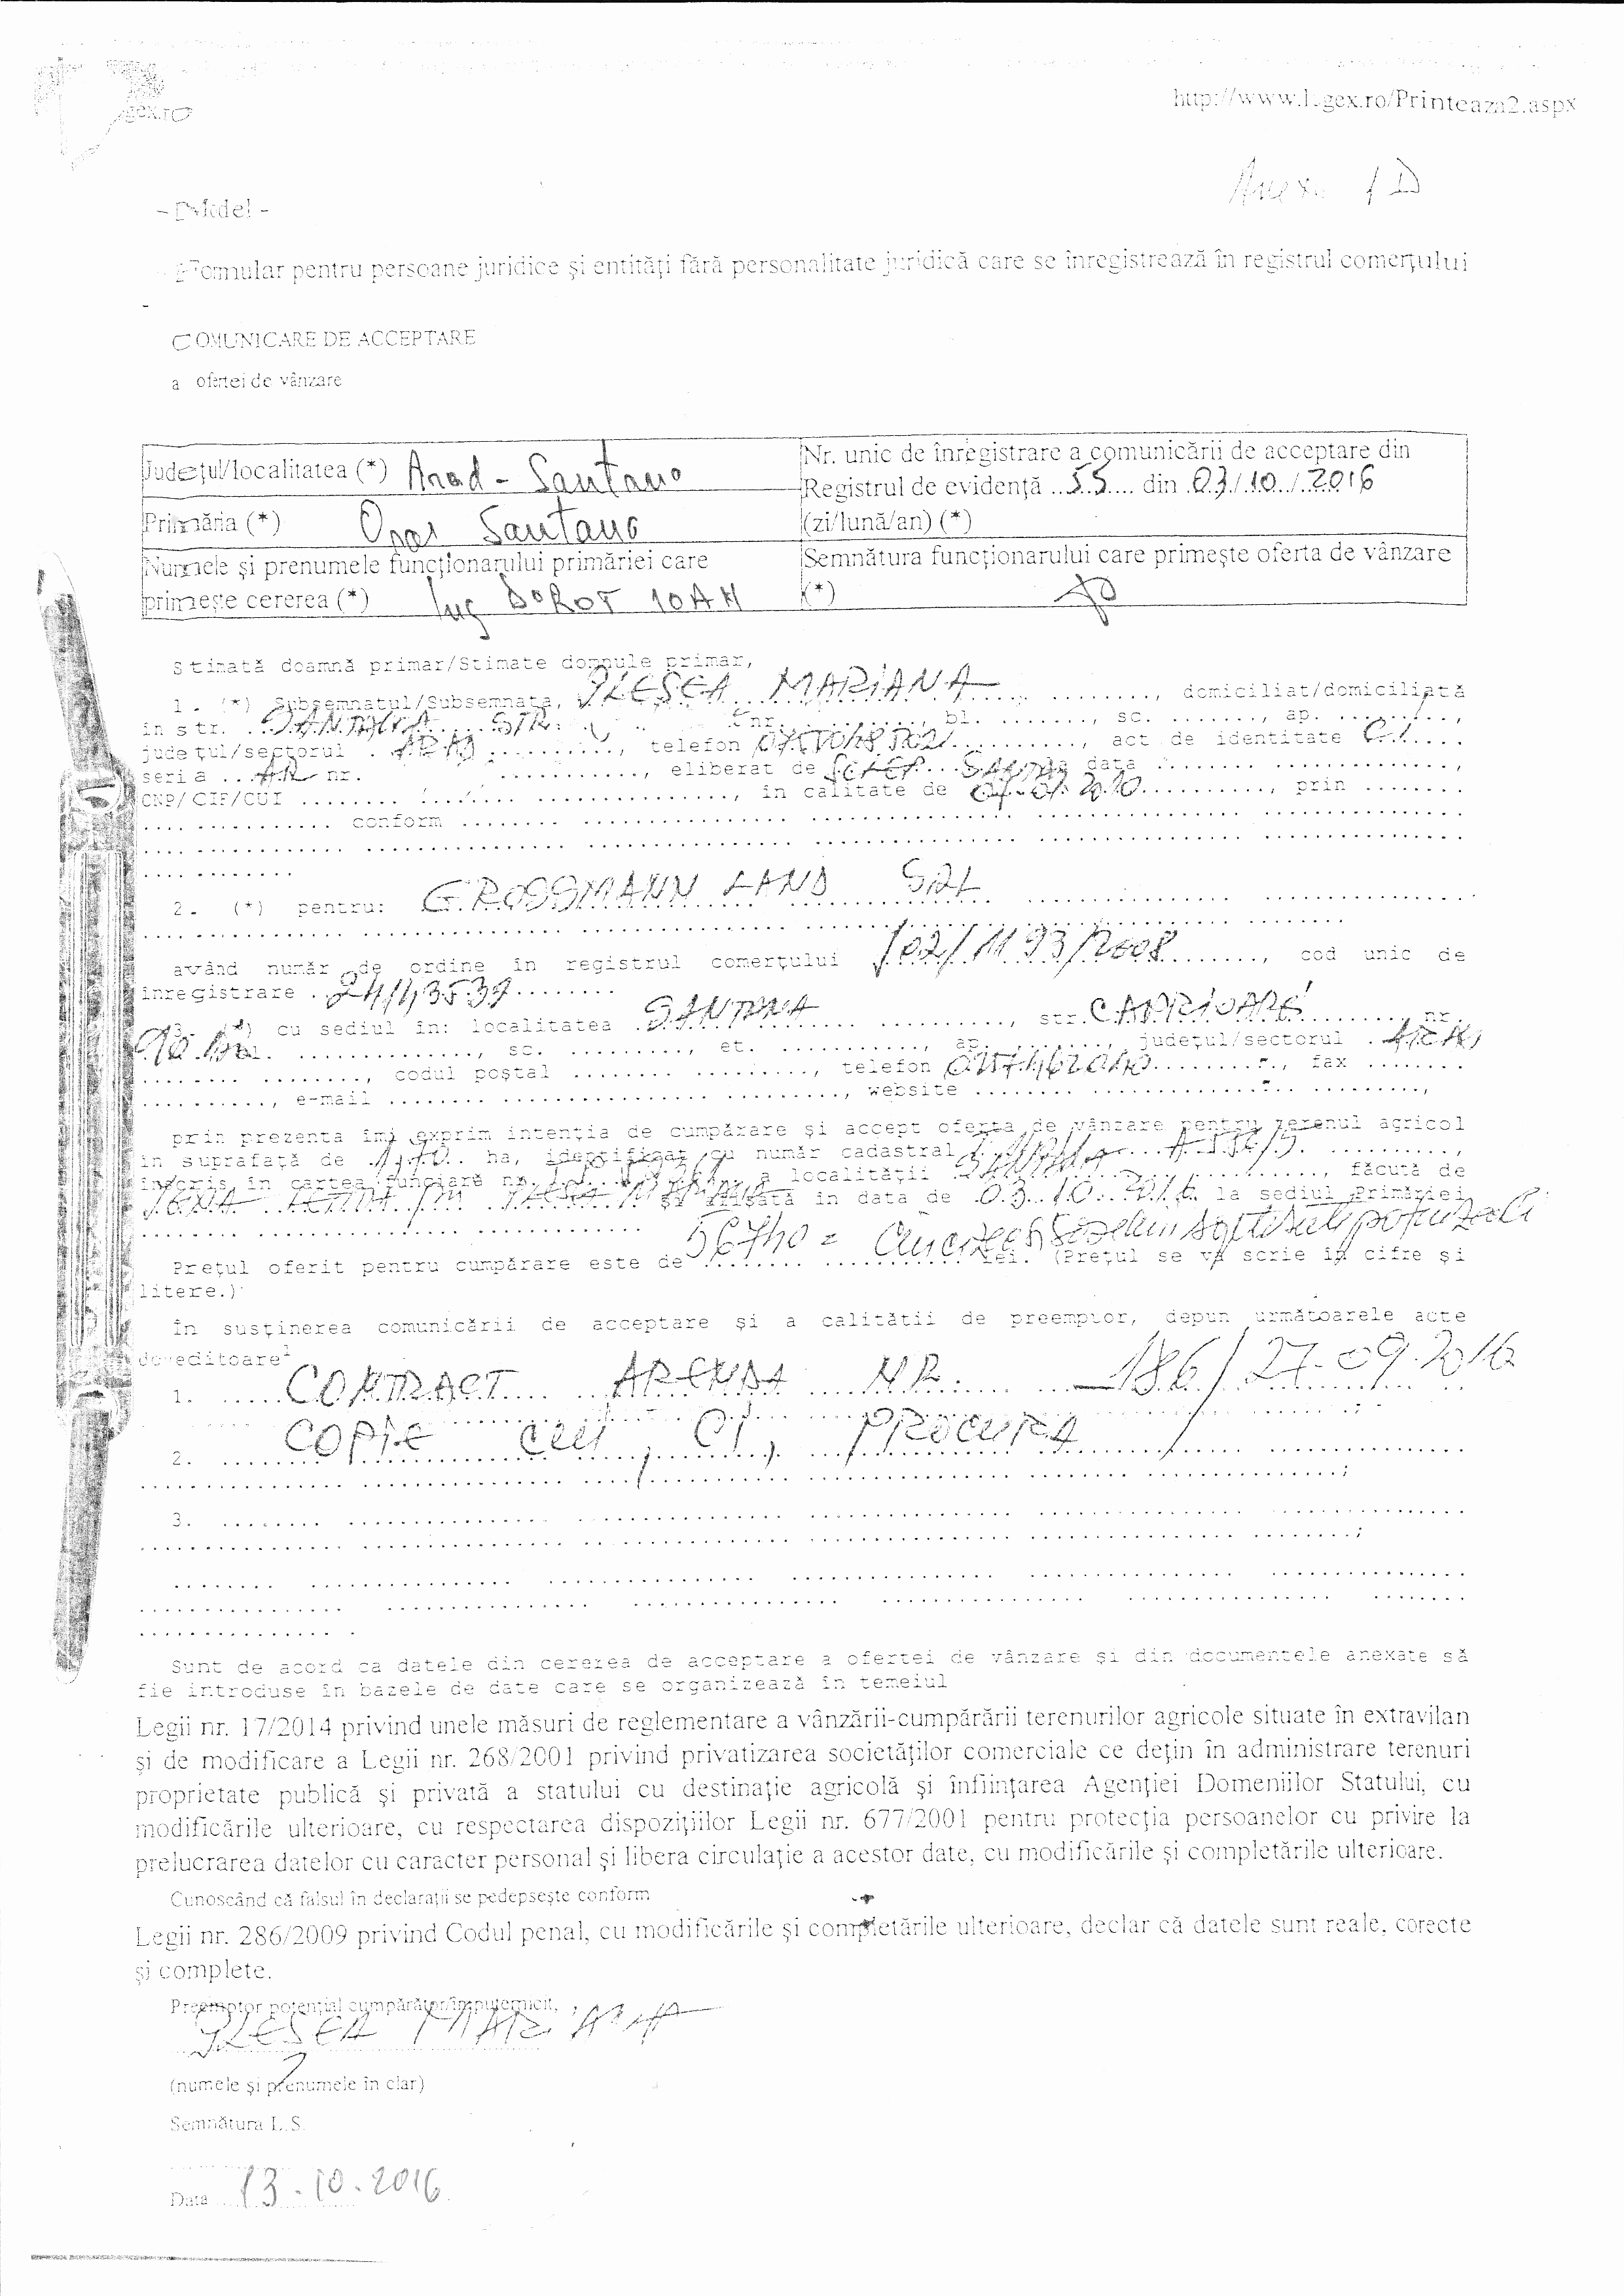 http://www.legex.ro/Printeaza2.aspx
Anexa 1D
- Model -
Formular pentru persoane juridice și entități fără personalitate juridică care se înregistrează în registrul comerțului
-
COMUNICARE DE ACCEPTARE
a ofertei de vânzare
Județul/localitatea (*) Arad - Santana
Nr. unic de înregistrare a comunicării de acceptare din
Registrul de evidență ..55.... din .03/.10../.2016
(zi/lună/an) (*)
Primăria (*) Oraș Santana
Numele și prenumele funcționarului primăriei care
primește cererea (*) Ing BOROT IOAN
Semnătura funcționarului care primește oferta de vânzare
(*)
Stimată doamnă primar/Stimate domnule primar,
1. (*) Subsemnatul/Subsemnata, MARIANA ........., domiciliat/domiciliată
în str. SANTANA STR. nr. ........, bl. ......., sc. ......., ap. ........,
județul/sectorul . ARAD ........, telefon ........, act de identitate C.I....
seria ...AR nr. ..........., eliberat de SANTANA la data ........ ...............,
CNP/CIF/CUI ........ ..............., în calitate de ..........., prin ........
.... ............ conform ........
2. (*) pentru: GROSSMANN LAND SRL
având număr de ordine în registrul comerțului J02/1193/2008........, cod unic de
înregistrare ..24143539........
3. (*) cu sediul în: localitatea .SANTANA ..............., str. CAPRIOAREI........, nr.
........., sc. .........., et. ..........., ap. ......., județul/sectorul . ARAD
........ ........, codul poștal ........ ........., telefon .........., fax ........
.........., e-mail ........ ........., website ........ ..........,
prin prezenta îmi exprim intenția de cumpărare și accept oferta de vânzare pentru terenul agricol
în suprafață de ........ ha, identificat cu număr cadastral ...........,
înscris în cartea funciară nr. ........ a localității SANTANA ..........., făcută de
și afișată în data de .03.10.2016 la sediul Primăriei
Prețul oferit pentru cumpărare este de 56740 = lei. (Prețul se va scrie în cifre și
litere.)
În susținerea comunicării de acceptare și a calității de preemptor, depun următoarele acte
doveditoare1
1. ......CONTRACT ARENDA NR. 186/27.09.2016
2. ......COPIE CUI, CI, PROCURA
3. ........
Sunt de acord ca datele din cererea de acceptare a ofertei de vânzare și din documentele anexate să
fie introduse în bazele de date care se organizează în temeiul
Legii nr. 17/2014 privind unele măsuri de reglementare a vânzării-cumpărării terenurilor agricole situate în extravilan
și de modificare a Legii nr. 268/2001 privind privatizarea societăților comerciale ce dețin în administrare terenuri
proprietate publică și privată a statului cu destinație agricolă și înființarea Agenției Domeniilor Statului, cu
modificările ulterioare, cu respectarea dispozițiilor Legii nr. 677/2001 pentru protecția persoanelor cu privire la
prelucrarea datelor cu caracter personal și libera circulație a acestor date, cu modificările și completările ulterioare.
Cunoscând că falsul în declarații se pedepsește conform
Legii nr. 286/2009 privind Codul penal, cu modificările și completările ulterioare, declar că datele sunt reale, corecte
și complete.
Preemptor potențial cumpărător/împuternicit,
MARIANA
(numele și prenumele în clar)
Semnătura L.S.
Data 13.10.2016